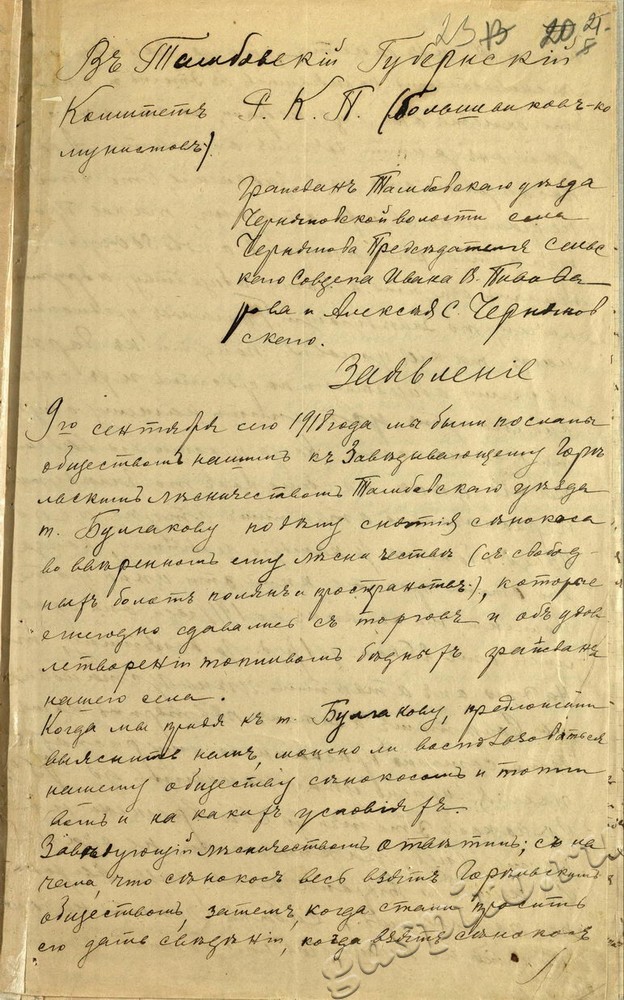 23 13 20 21
8
Въ Тамбовскій Губернскій
Комитетъ Р. К. П. (большевиковъ-ко
мунистовъ).
Гражданъ Тамбовскаго уѣзда
Черняновской волости села
Чернянова Председателя Сельс-
каго Совдепа Ивана В. Пивова
рова и Алексѣя С. Чернянов
скаго.
Заявленіе
9го сентября сего 1918 года мы были посланы
обществомъ нашимъ къ Завѣдывающему Горѣ
льскимъ лѣсничествомъ Тамбовскаго уѣзда
т. Булгакову по дѣлу снятія сѣнокоса
во ввѣренномъ ему лѣсничествѣ (съ свобод-
ныхъ болотъ полянъ и пространствъ), которые
ежегодно сдавались съ торговъ и объ удов
летвореніи топливомъ бѣдныхъ гражданъ
нашего села.
Когда мы придя къ т. Булгакову, предложили
выяснить намъ, можно ли воспользоваться
нашему обществу сѣнокосомъ и топли
вомъ и на какихъ условіяхъ.
Завѣдующій лѣсничествомъ отвѣтилъ; съ на
чала, что сѣнокосъ весь взятъ Горѣльскимъ
обществомъ, затемъ, когда стали просить
его дать свѣдѣнія, когда взятъ сѣнокосъ